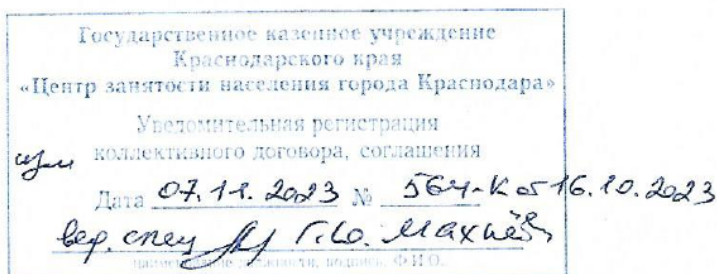 Государственное казенное учреждение
Краснодарского края
«Центр занятости населения города Краснодара»
Уведомительная регистрация
коллективного договора, соглашения
Дата 07.11.2023 № 564-К от 16.10.2023
вед. спец Г.Ю.
наименование должности, подпись, Ф.И.О.